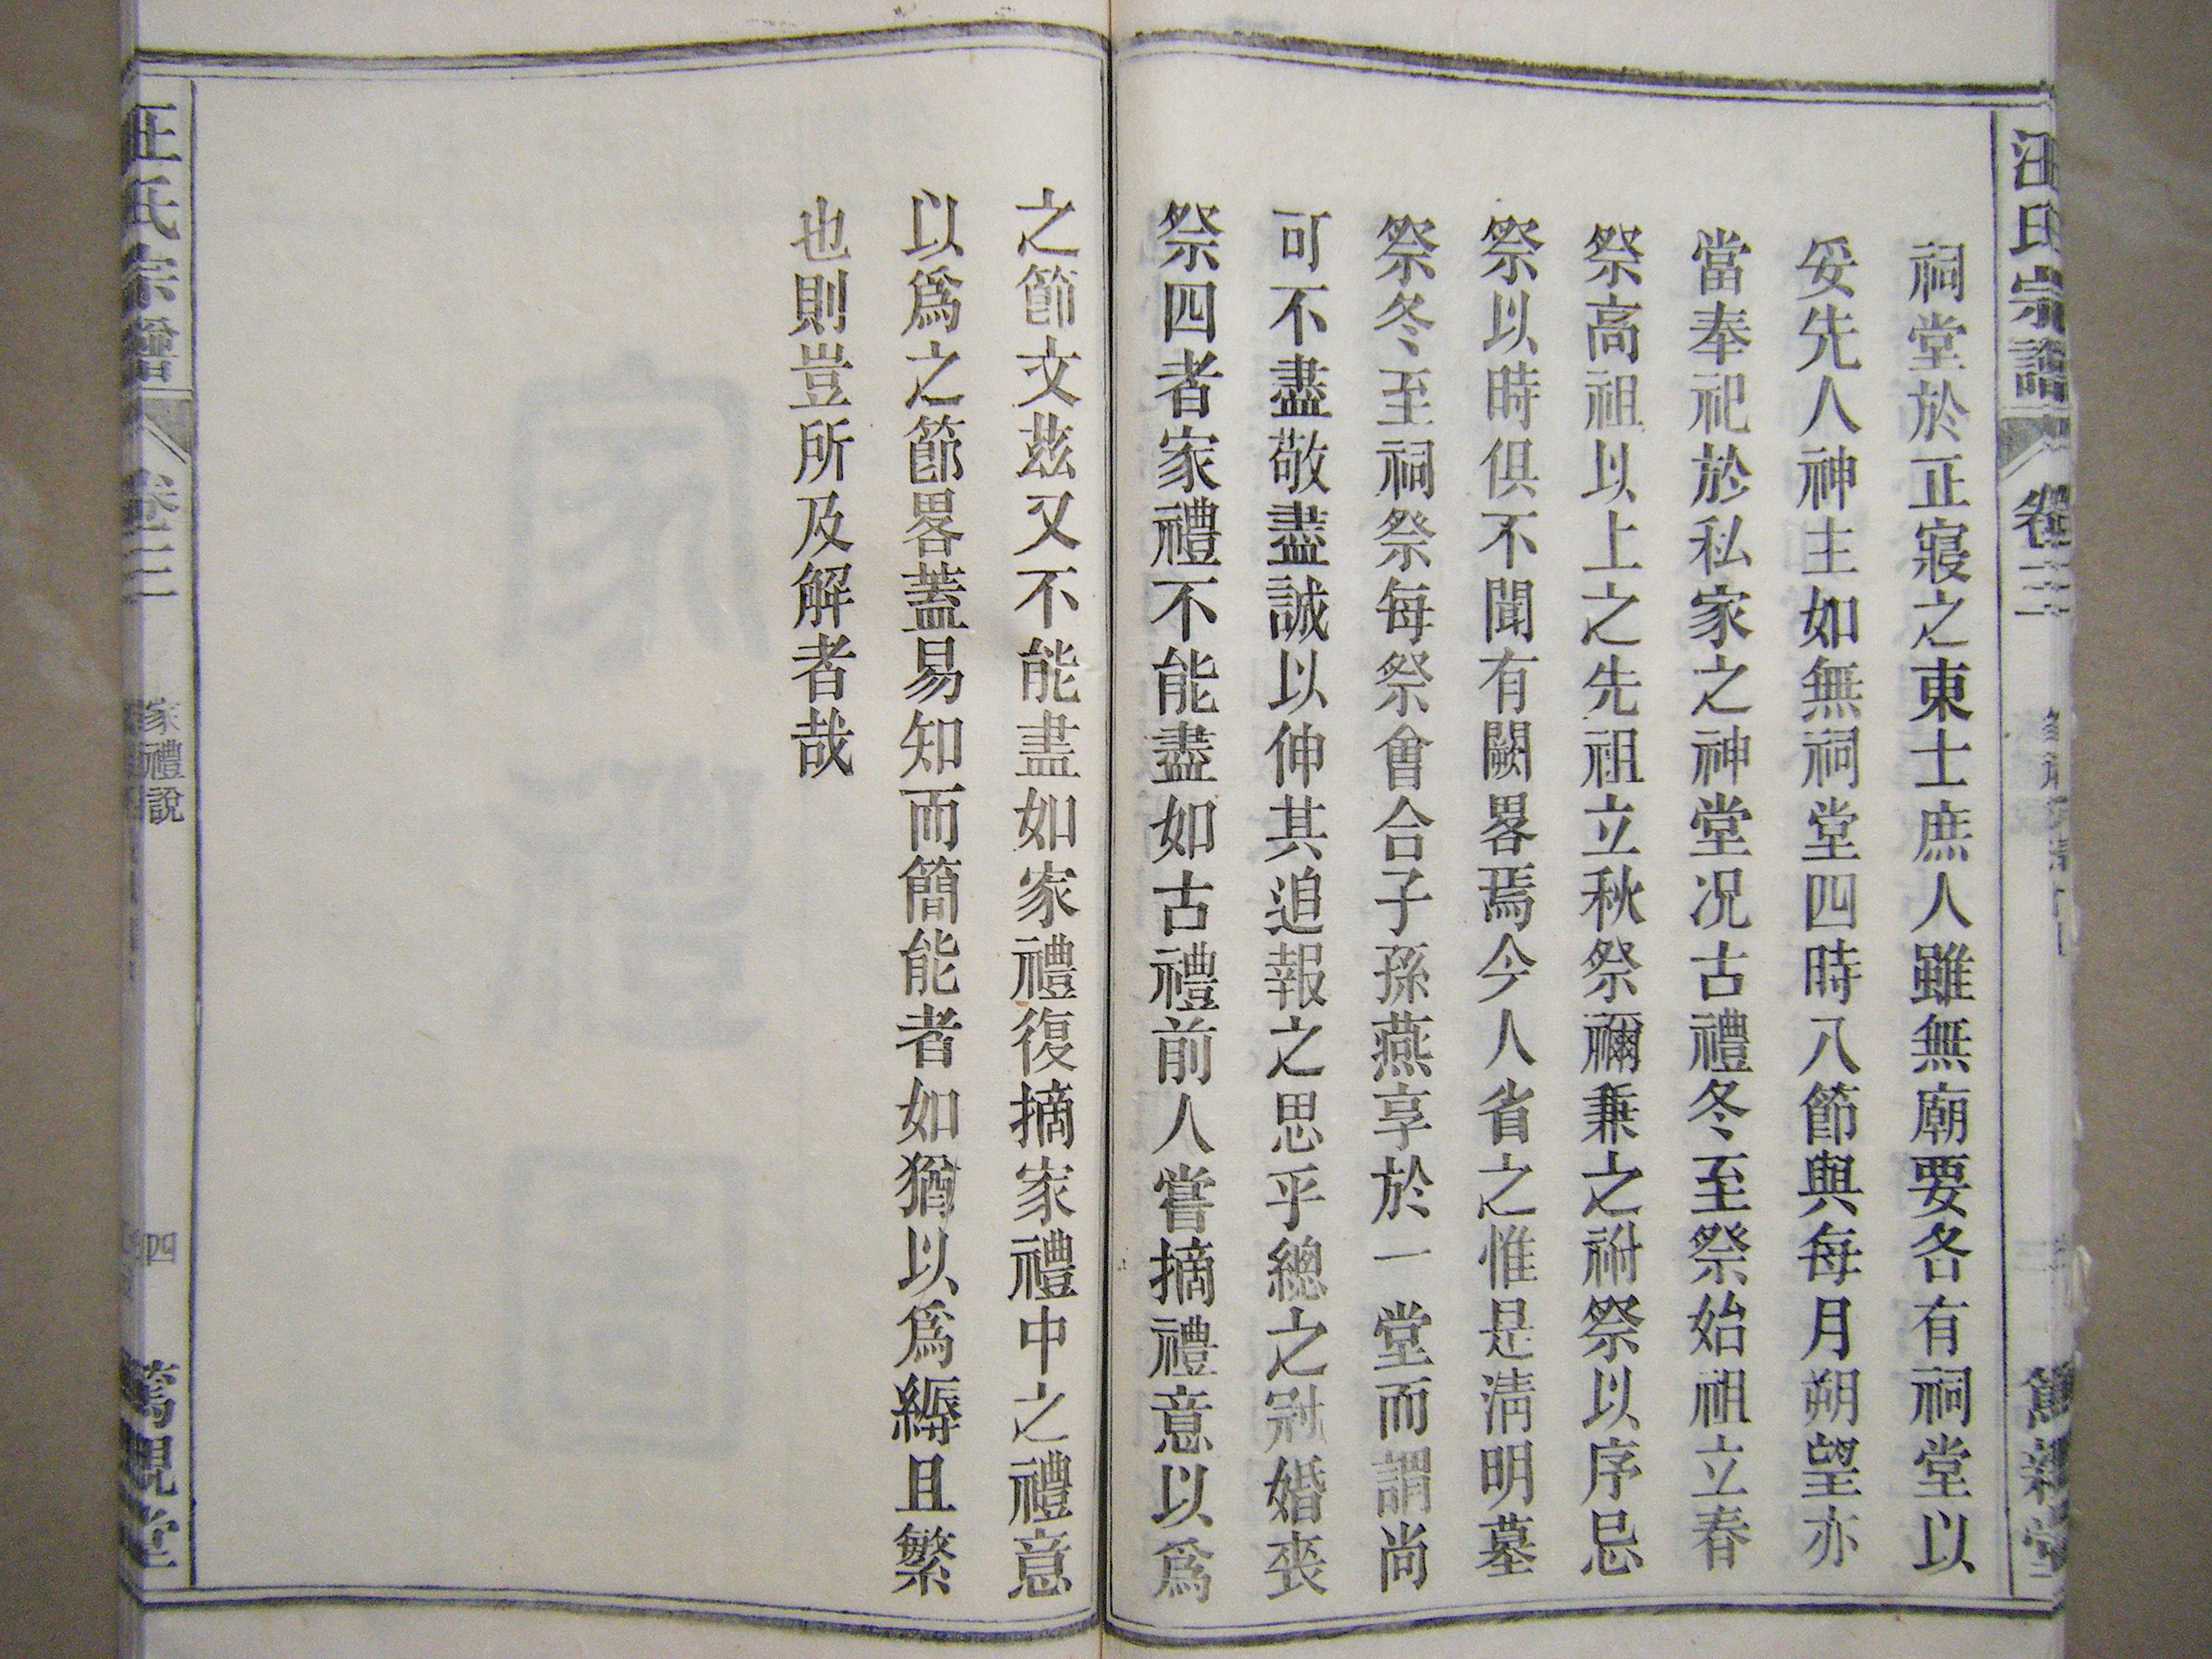 汪氏宗譜 卷三
祠堂於正寢之東士庶人雖無廟要各有祠堂以
妥先人神主如無祠堂四時八節與每月朔望亦
當奉祀於私家之神堂况古禮冬至祭始祖立春
祭高祖以上之先祖立秋祭禰兼之祔祭以序忌
祭以時俱不聞有闕畧焉今人省之惟是淸明墓
祭冬至祠祭每祭會合子孫燕享於一堂而謂尚
可不盡敬盡誠以伸其追報之思乎總之冠婚喪
祭四者家禮不能盡如古禮前人嘗摘禮意以爲
之節文茲又不能盡如家禮復摘家禮中之禮意
以爲之節畧蓋易知而簡能者如猶以爲縟且繁
也則豈所及解者哉
汪氏宗譜 卷三 家禮說 四